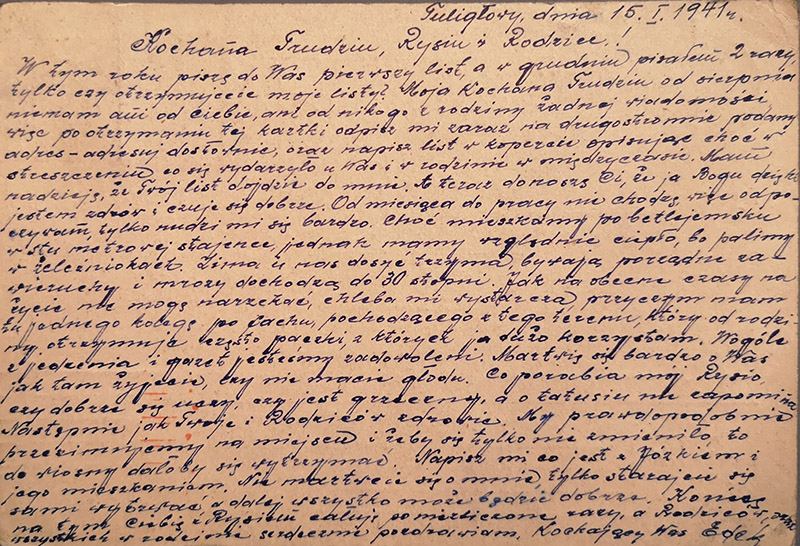 Tuligłowy, dnia 15. I. 1941 r.
Kochana Trudziu, Rysiu i Rodzice!
W tym roku piszę do Was pierwszy list, a w grudniu pisałem 2 razy,
tylko czy otrzymujecie moje listy? Moja Kochana Trudziu od sierpnia
niemam ani od Ciebie, ani od nikogo z rodziny żadnej wiadomości,
więc po otrzymaniu tej kartki odpisz mi zaraz na drugostronnie podany
adres - adresuj dosłownie, oraz napisz list w kopercie opisując choć w
streszczeniu co się wydarzyło u Was i w rodzinie w międzyczasie. Mam
nadzieję, że Twój list dojdzie do mnie. A teraz donoszę Ci, że ja Bogu dzięki
jestem zdrów i czuję się dobrze. Od miesiąca do pracy nie chodzę, więc odpo-
czywam, tylko nudzi mi się bardzo. Choć mieszkamy po betlejemsku
w stu metrowej stajence, jednak mamy względnie ciepło, bo palimy
w żeleźniakach. Zima u nas dosyć trzyma, bywają porządne za-
wieruchy i mrozy dochodzą do 30 stopni. Jak na obecne czasy na
życie nie mogę narzekać, chleba mi wystarcza przyczym mam
tu jednego kolegę po fachu, pochodzącego z tego terenu, który od rodzi-
ny otrzymuje często paczki, z których ja dużo korzystam. Wogóle
z jedzenia i gazet jesteśmy zadowoleni. Martwię się bardzo o Was
jak tam żyjecie, czy nie macie głodu. Co porabia mój Rysio,
czy dobrze się uczy, czy jest grzeczny, a o tatusiu nie zapomina
Następnie jak Twoje i Rodziców zdrowie. My prawdopodobnie
przezimujemy na miejscu i żeby się tylko nie zmieniło, to
do wiosny dałoby się wytrzymać. Napisz mi co jest z Józkiem i
jego mieszkaniem. Nie martwcie się o mnie, tylko starajcie się
sami wytrwać, a dalej wszystko może będzie dobrze. Kończę
na tym Ciebie z Rysiem całuję po niezliczone razy, a Rodziców,
wszystkich w rodzinie serdecznie pozdrawiam. Kochający Was Edek